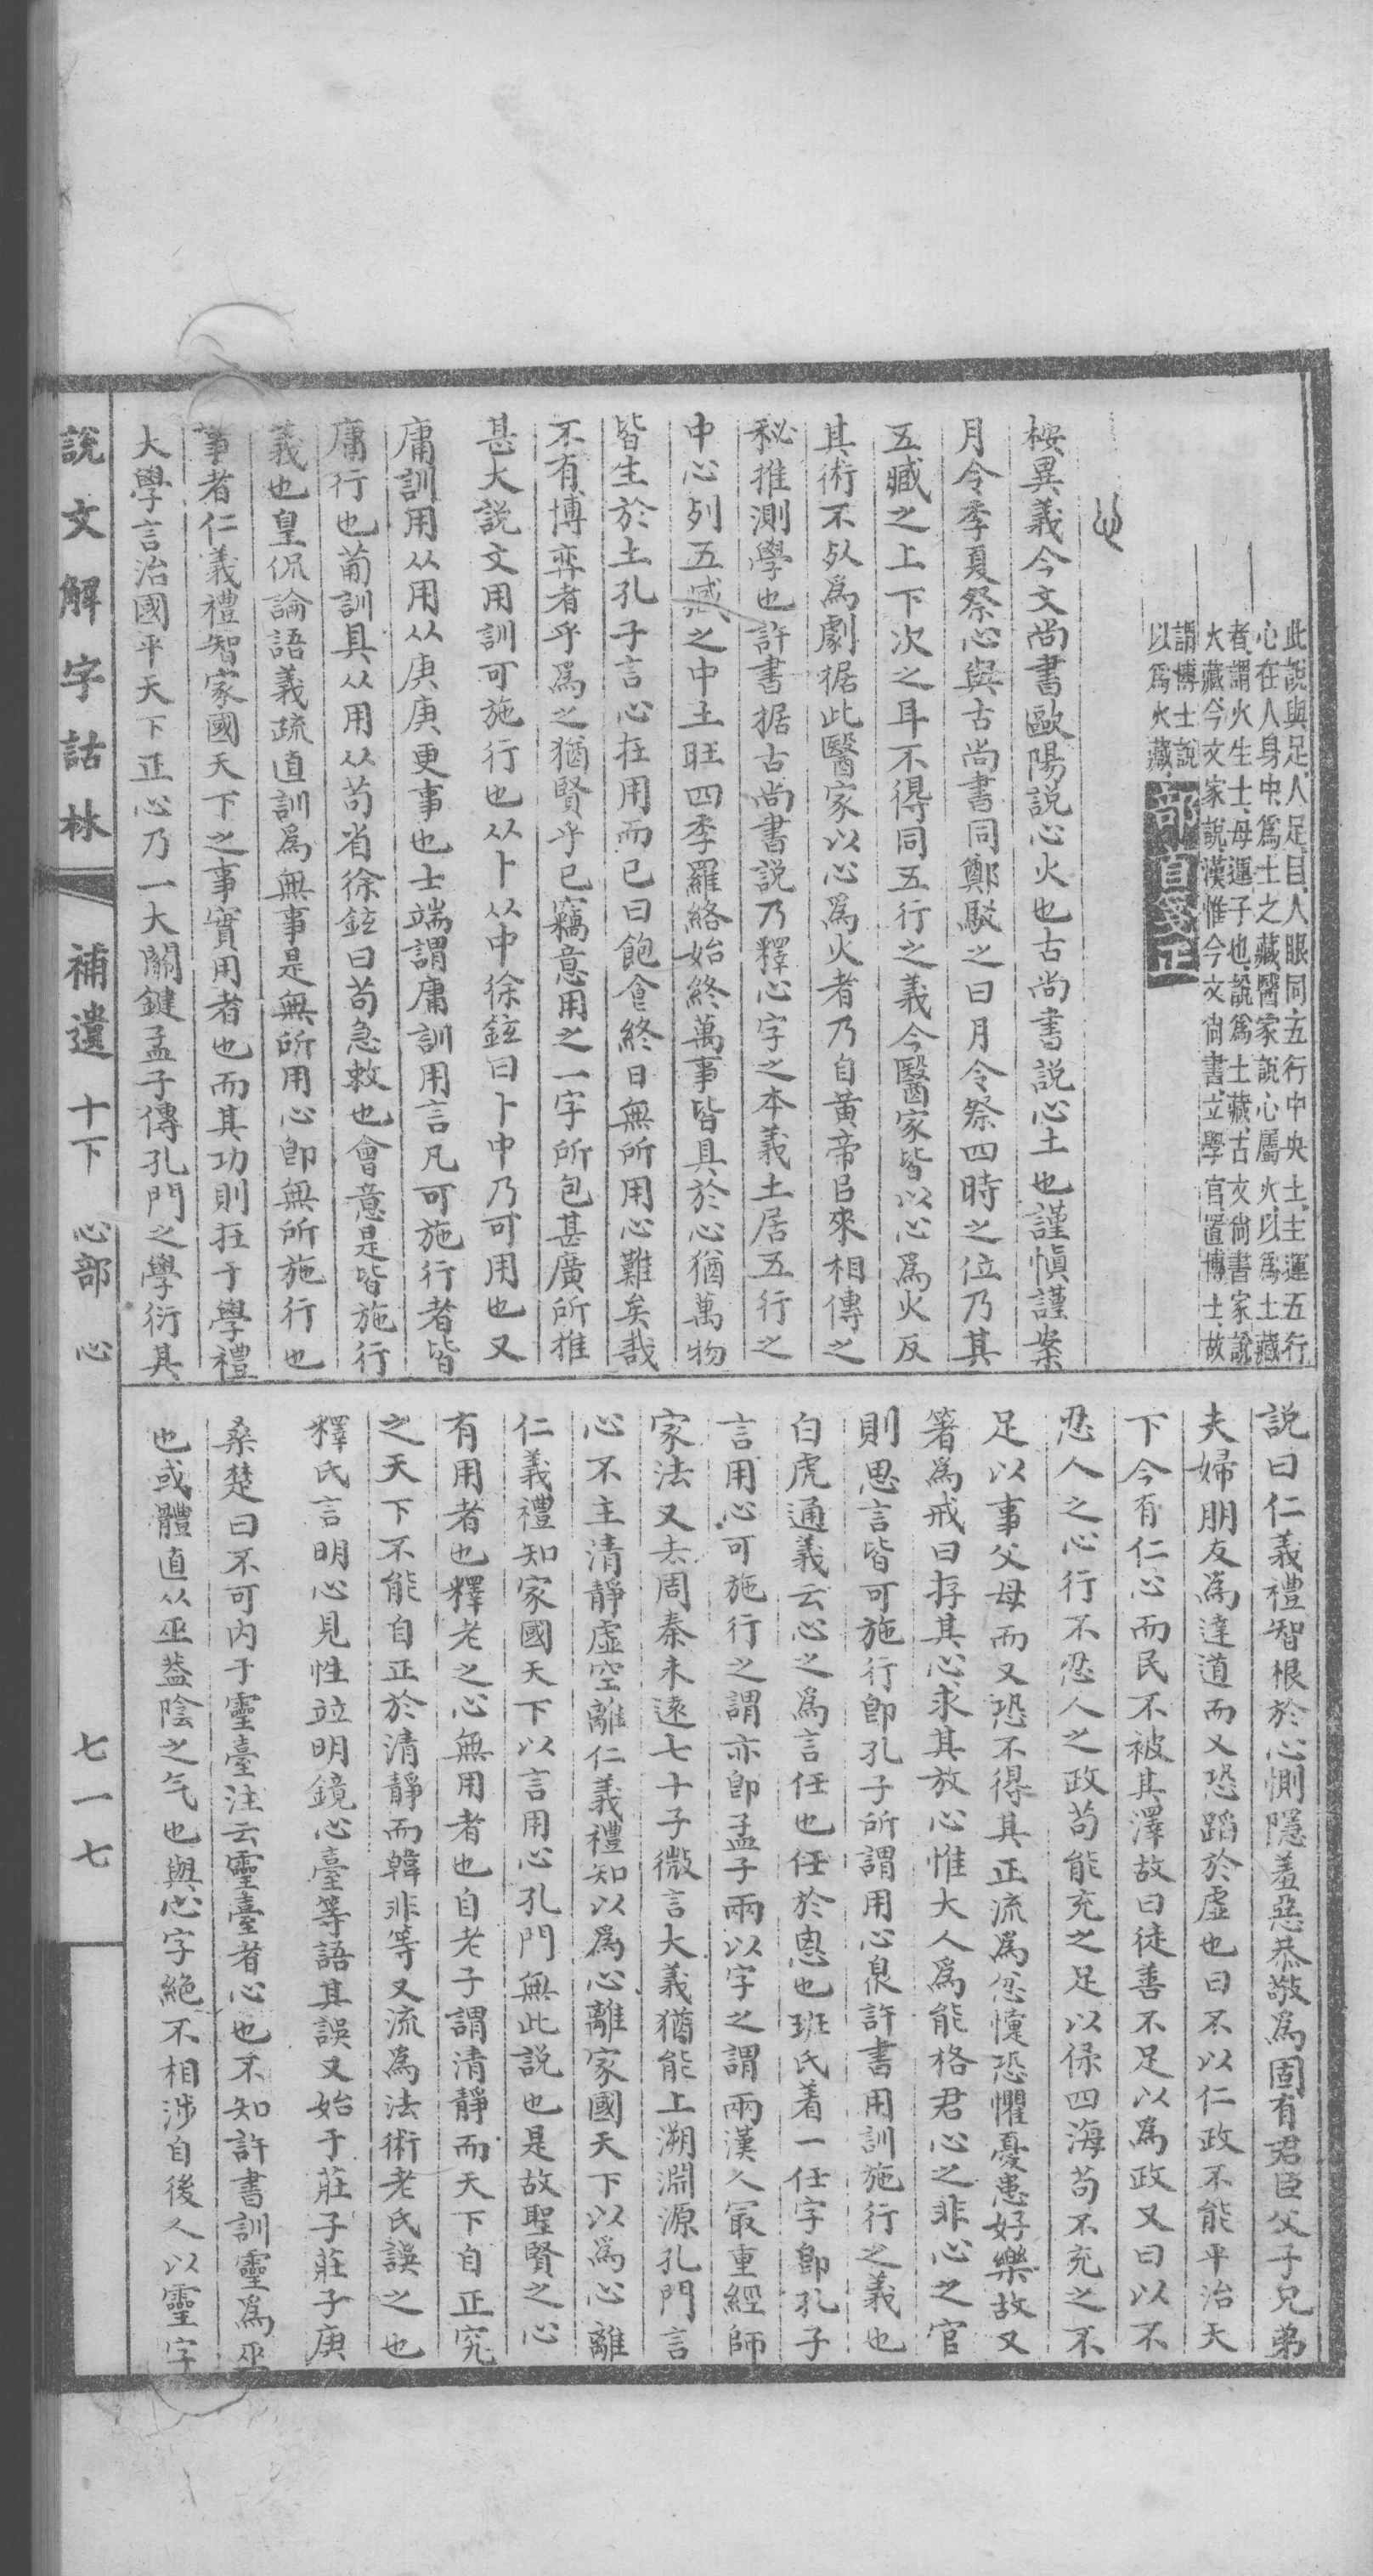 此說與足人足目人眼同五行中央土主運五行
心在人身中爲土之藏醫家說心屬火以爲土藏
者謂火生土母運子也說爲土藏古文尙書家說
火藏今文家說漢惟今文尙書立學官置博士故
謂博士說
以爲火藏
部首箋正
桉異義今文尚書歐陽説心火也古尚書説心土也謹愼謹案
月令季夏祭心與古尚書同鄭駁之曰月令祭四時之位乃其
五臧之上下次之耳不得同五行之義今醫家皆以心爲火反
其術不㱾爲劇据此醫家以心爲火者乃自黄帝㠯來相傳之
秘推測學也許書据古尚書説乃釋心字之本義土居五行之
中心列五臧之中土旺四季羅絡始終萬事皆具於心猶萬物
皆生於土孔子言心在用而已曰飽食終日無所用心難矣哉
不有博弈者乎爲之猶賢乎已竊意用之一字所包甚廣所推
甚大説文用訓可施行也从卜从中徐鉉曰卜中乃可用也又
庸訓用从用从庚庚更事也士端謂庸訓用言凡可施行者皆
庸行也葡訓具从用从苟省徐鉉曰苟急敕也會意是皆施行
義也皇侃論語義疏直訓爲無事是無所用心卽無所施行也
事者仁義禮智家國天下之事實用者也而其功則在于學禮
大學言治國平天下正心乃一大關鍵孟子傳孔門之學衍其
説曰仁義禮智根於心惻隱羞惡恭敬爲固有君臣父子兄弟
夫婦朋友爲達道而又恐蹈於虚也曰不以仁政不能平治天
下今有仁心而民不被其澤故曰徒善不足以爲政又曰以不
忍人之心行不忍人之政苟能充之足以保四海苟不充之不
足以事父母而又恐不得其正流爲忿懥恐懼憂患好樂故又
箸爲戒曰存其心求其放心惟大人爲能格君心之非心之官
則思言皆可施行卽孔子所謂用心㑶許書用訓施行之義也
白虎通義云心之爲言任也任於恩也班氏着一任字卽孔子
言用心可施行之謂亦卽孟子兩以字之謂兩漢人冣重經師
家法又去周秦未遠七十子微言大義猶能上溯淵源孔門言
心不主清靜虚空離仁義禮知以爲心離家國天下以爲心離
仁義禮知家國天下以言用心孔門無此説也是故聖賢之心
有用者也釋老之心無用者也自老子謂清靜而天下自正究
之天下不能自正於清靜而韓非等又流爲法術老氏誤之也
釋氏言明心見性竝明鏡心臺等語其誤又始于莊子莊子庚
桑楚曰不可内于靈臺注云靈臺者心也不知許書訓靈爲巫
也或體直从巫葢陰之气也與心字絶不相涉自後人以靈字
說文解字詁林 補遺 十下 心部 心 七一七